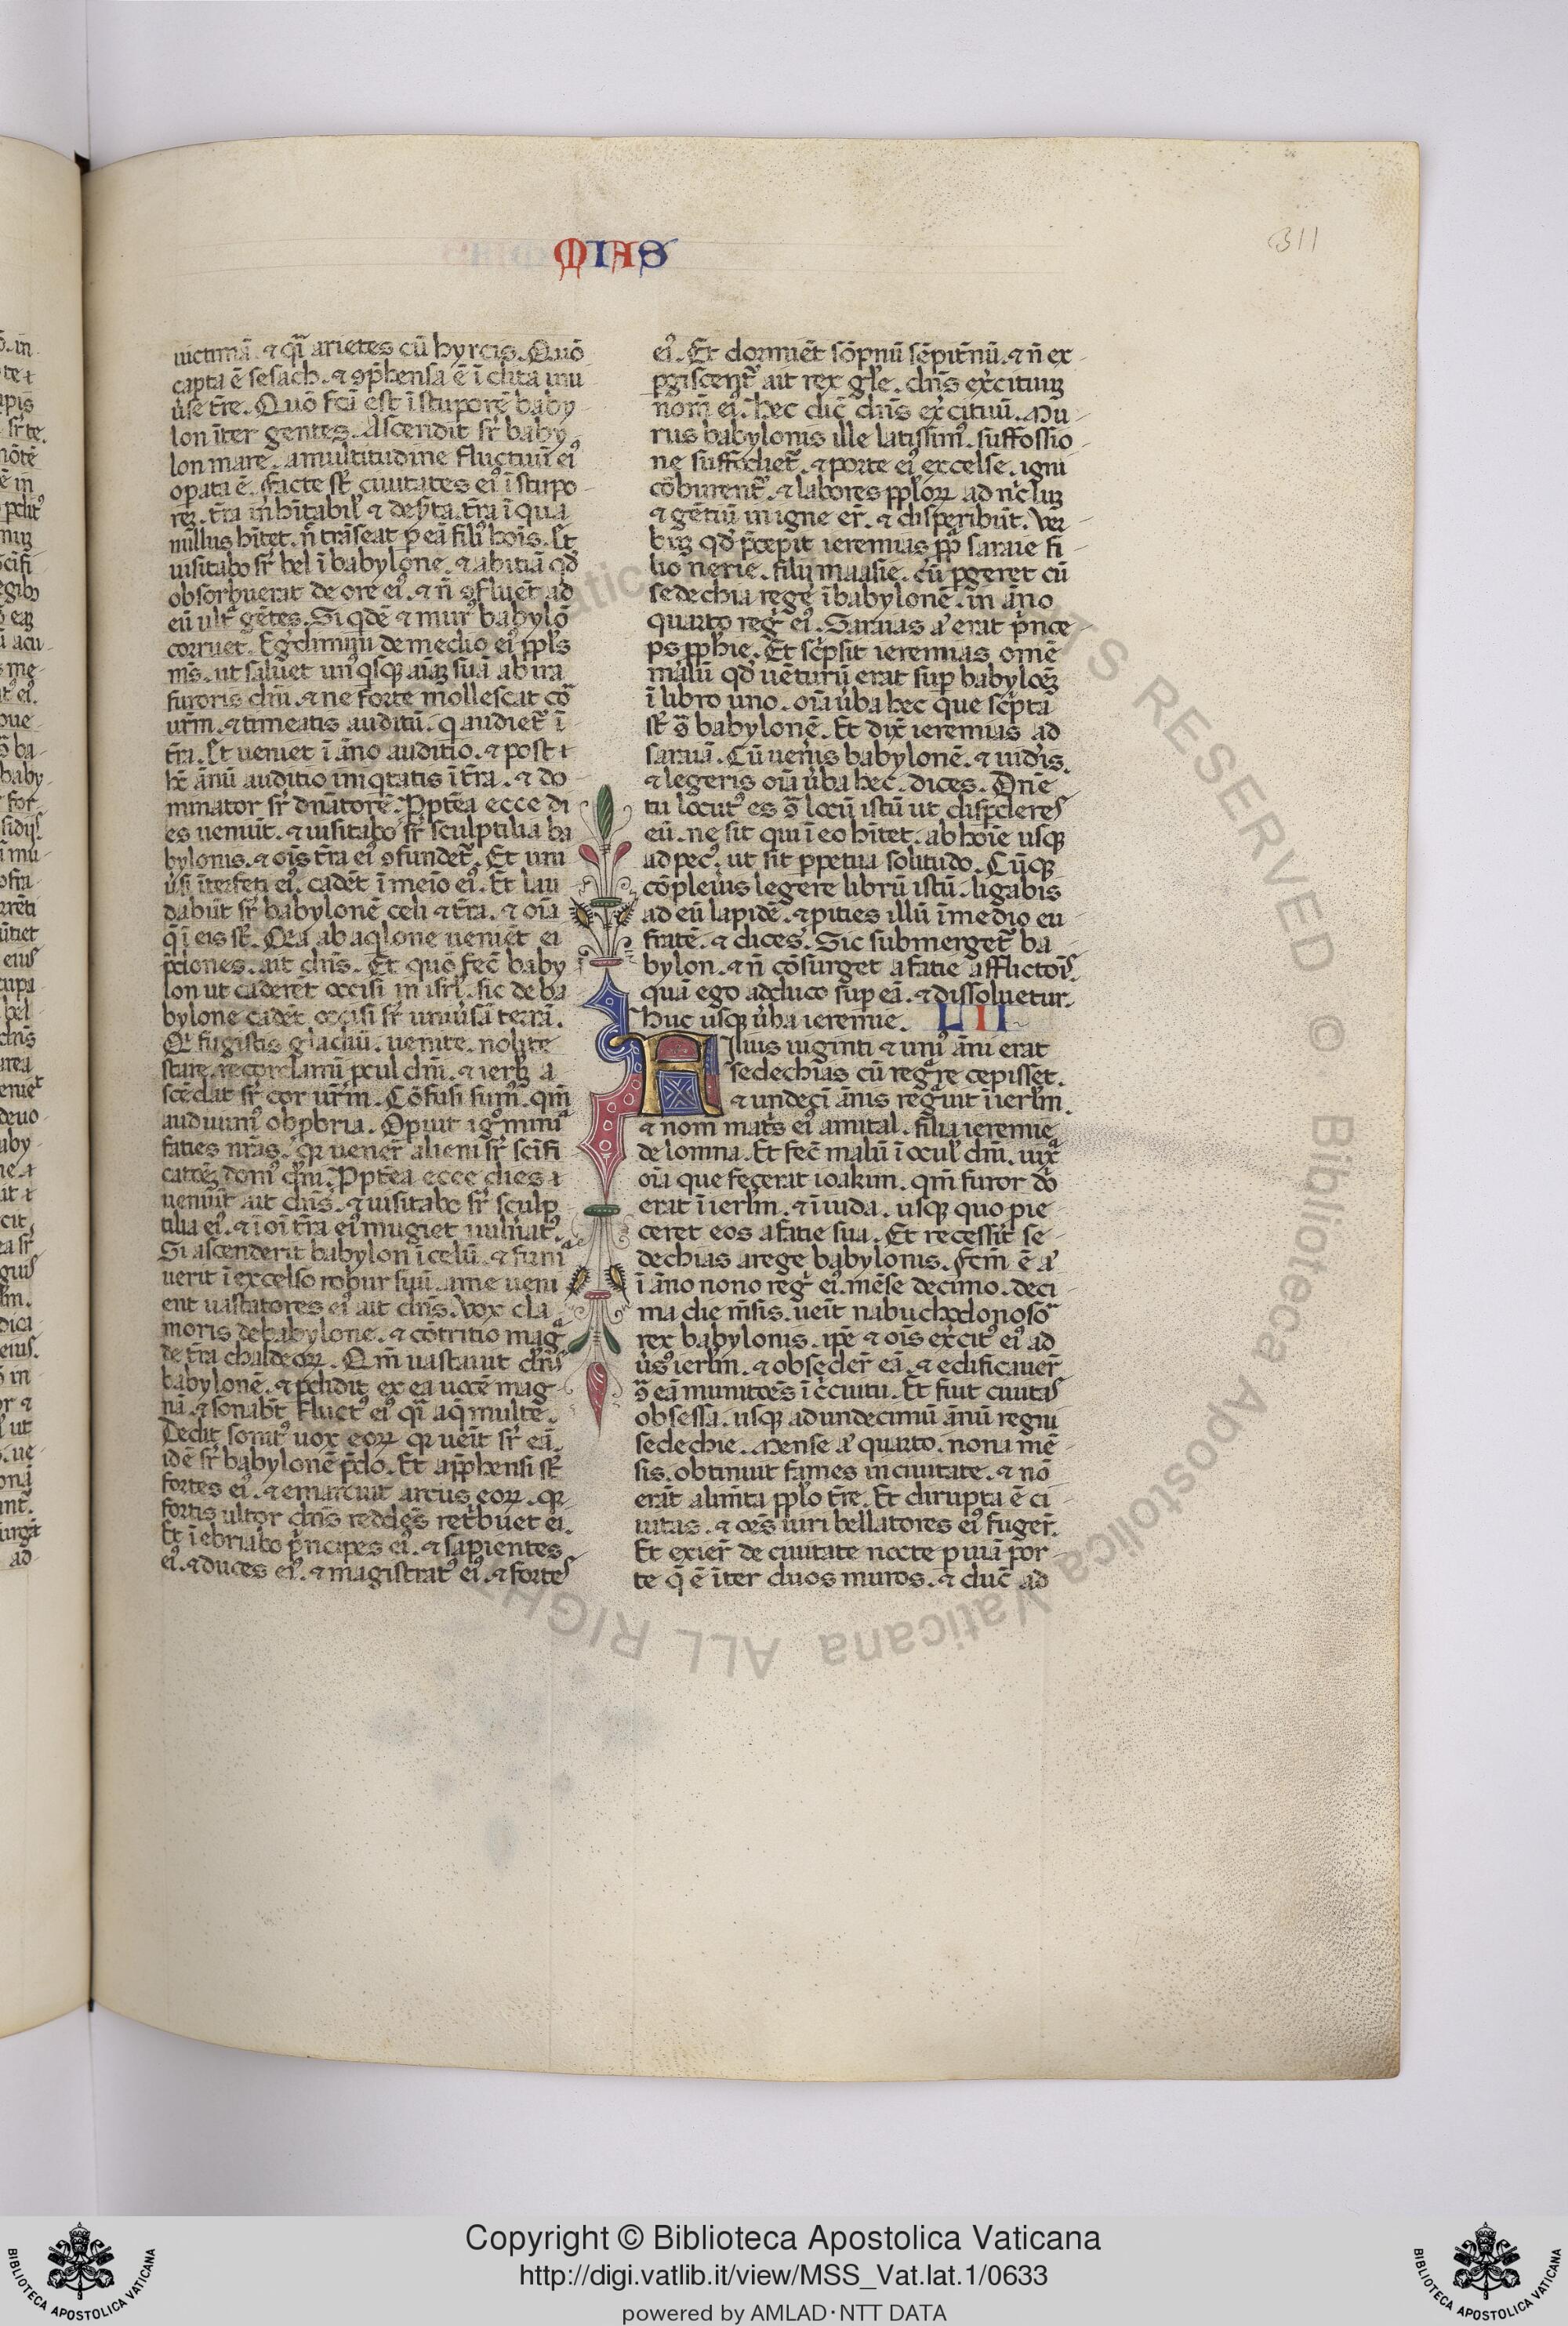 MIAS
311
uictimā. ⁊ qͣi arietes cū hyrcis. Quō
capta ē sesach. ⁊ ꝯp̄hensa ē ī clita uni
ūse t̄re. Quō fc̄a est ī stuporē baby
lon īter gentes. Ascendit sr̄ baby
lon mare. a multitudine fluctuū eiꝰ
opata ē. Facte st̄ ciuitates eiꝰ ī stupo
rēz. t̄ra inhītabil̄ ⁊ dest̄ta. t̄ra ī qua
nullus hītet. ⁊ n̄ trāseat p̄ eā filiꝰ hoīs. Et
uisitabo sr̄ bel ī babylone. ⁊ abitiā qđ
obsorbuerat de ore eiꝰ. ⁊ n̄ ꝯfluēt ad
eū ultͣ gētes. Si qdē ⁊ murꝰ babylō
corruet. Egrdimini de medio eiꝰ ppl̄s
m̄s. ut saluet unꝰ qsqꝫ aīaꝫ suā ab ira
furoris dn̄i. ⁊ ne forte mollescat cor̄
ur̄m. ⁊ timeatis auditū. q audiet̄ ī
t̄ra. Et ueniet ī āno auditio. ⁊ post ⁊
hc̄ ānū auditio iniqtatis ī t̄ra. ⁊ do
minator sr̄ dnātorē. Ppt̄ea ecce di
es ueniūt. ⁊ uisitabo sr̄ sculptilia ba
bylonis. ⁊ oīs t̄ra eiꝰ ꝯfundet̄. Et uni
ūsi īterfeti eiꝰ. cadēt ī meio eiꝰ. Et lau
dabūt sr̄ babylonē celi ⁊ t̄ra. ⁊ oīa
q̄ ī eis st̄. Qꝛa ab aqlone ueniēt ei
p̄dones. ait dn̄s. Et quō fec̄ baby
lon ut caderēt occisi in isrl̄. sic de ba
bylone cadēt occisi sr̄ uniūsā terrā.
Qi fugistis gladiū. uenite. nolite
stare. recordamī pcul dn̄i. ⁊ ierlꝫ a
scēdat sr̄ cor ur̄m. Cōfusi sumꝰ. qm̄
audiuimꝰ obpbria. Opuit igͦmīnia
faties nr̄as. qꝛ uener̄ alieni sr̄ scīfi
catōeꝫ domꝰ dn̄i. Ppt̄ea ecce dies ⁊
ueniūt ait dn̄s. ⁊ uisitabo sr̄ sculp
tilia eiꝰ. ⁊ ī oī t̄ra eiꝰ mugiet uuln̄atꝰ.
Si ascenderit babylon ī celū. ⁊ firmͣ
uerit ī excelso robur suū. a me ueni
ent uastatores eiꝰ ait dn̄s. Vox cla
moris de babylone. ⁊ cōtritio magͣ
de t̄ra chaldeoꝝ. Qm̄ uastauit dn̄s
babylonē. ⁊ pdidit ex ea uocē mag
nā. ⁊ sonabt̄ fluctꝰ eiꝰ qͣi aq̄ multe.
Dedit sonitꝰ uox eoꝝ qꝛ ueīt sr̄ eā.
idē sr̄ babylonē p̄do. Et app̄hensi st̄
fortes eiꝰ. ⁊ emarcuit arcus eoꝝ. qꝛ
fortis ultor dn̄s reddēs ret̄buet ei.
Et īebriabo p̄ncipes eiꝰ. ⁊ sapientes
eiꝰ. ⁊ duces eiꝰ. ⁊ magistratꝰ eiꝰ. ⁊ fortes
eiꝰ. Et dormiēt sōpnū sēpit̄nū. ⁊ n̄ ex
pgiscent̄ ait rex gl̄e. dn̄s ex̄cituuꝫ
nom̄ eiꝰ. hec dic̄ dn̄s ex̄cituū. Mu
rus babylonis ille latissimꝰ. suffossio
ne suffodiet̄. ⁊ porte eiꝰ excelse. igni
cōburent̄. ⁊ labores pploꝝ ad nͥcluꝫ
⁊ gētiū in igne er̄. ⁊ disperibūt. Ver
buꝫ qđ p̄cepit ieremias pp̄ saraie fi
lio nerie. filij maasie. cū pgeret cū
sedechia rege ī babylonē. in āno
quarto reḡ eiꝰ. Saraias aͧ erat p̄nce
ps pphie. Et scp̄sit ieremias omē
malū qđ uēturū erat sup babyloeꝫ
ī libro uno. oīa ūba hec que scp̄ta
st̄ ꝯͣ babylonē. Et dix̄ ieremias ad
saraiā. Cū uenis babylonē. ⁊ uid̄is.
⁊ legeris oīa ūba hec. dices. Dn̄e
tu locutꝰ es ꝯͣ locū istū ut dispderes
eū. ne sit qui ī eo hītet. ab hoīe usqꝫ
ad pecꝰ. ut sit ppetua solitudo. Cūqꝫ
cōpleūis legere librū istū. ligabis
ad eū lapidē. ⁊ pities illū ī medio eu
fratē. ⁊ dices. Sic submerget̄ ba
bylon. ⁊ n̄ cōsurget a fatie afflictoīs.
quā ego adduco sup eā. ⁊ dissoluetur.
Huc usqꝫ ūba ieremie. LII
Filius uiginti ⁊ unīꝰ āni erat
sedechias cū regͣre cepisset.
⁊ undecī ānis regͣuit ī ierl̄m.
⁊ nom̄ mat̄s eiꝰ amital. filia ieremie
de lomna. Et fec̄ malū ī ocul̄ dn̄i. iuxͣ
oīa que fecerat ioakim. qm̄ furor dn̄i
erat ī ierl̄m. ⁊ ī iuda. usqꝫ quo pie
ceret eos a fatie sua. Et recessit se
dechias a rege babylonis. Fcm̄ ē aͧ
ī āno nono reḡ eiꝰ. mēse decimo. deci
ma die m̄sis. ueīt nabuchodonosor̄
rex babylonis. ip̄e ⁊ oīs ex̄citꝰ eiꝰ ad
ūsꝰ ierl̄m. ⁊ obseder̄ eā. ⁊ edificauer̄
ꝯͣ eā munitoēs ī cͥcuitu. Et fuit ciuitas
obsessa. usqꝫ ad undecimū ānū regni
sedechie. Mense aͧ quarto. nona mē
sis. obtinuit fames in ciuitate. ⁊ nō
erāt alim̄ta pplo t̄re. Et dirupta ē ci
uitas. ⁊ oēs uiri bellatores eiꝰ fuger̄.
Et exier̄ de ciuitate nocte p uiā por
te q̄ ē īter duos muros. ⁊ duc̄ ad
Copyright © Biblioteca Apostolica Vaticana
http://digi.vatlib.it/view/MSS_Vat.lat.1/0633
powered by AMLAD·NTT DATA
BIBLIOTECA APOSTOLICA VATICANA
BIBLIOTECA APOSTOLICA VATICANA